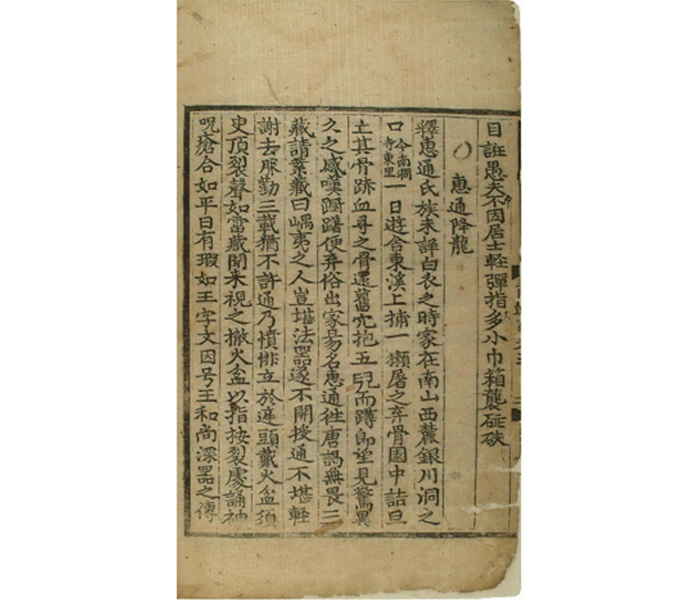 目誑愚夫不因居士輕彈指多小巾箱襲碔砆
惠通降龍
釋惠通氏族未詳白衣之時家在南山西麓銀川洞之
口今南澗寺東里一日遊舍東溪上捕一獺屠之弃骨園中詰旦
亡其骨跡血尋之骨還舊穴抱五兒而蹲郎望見驚異
久之感嘆躕躇便弃俗出家易名惠通往唐謁無畏三
藏請業藏曰嵎夷之人豈堪法器遂不開授通不堪輕
謝去服勤三載猶不許通乃憤悱立於㢠頭戴火盆須
臾頂裂聲如雷藏聞來視之撤火盆以指按裂處誦神
呪瘡合如平日有瑕如王字文因号王和尚深器之傳